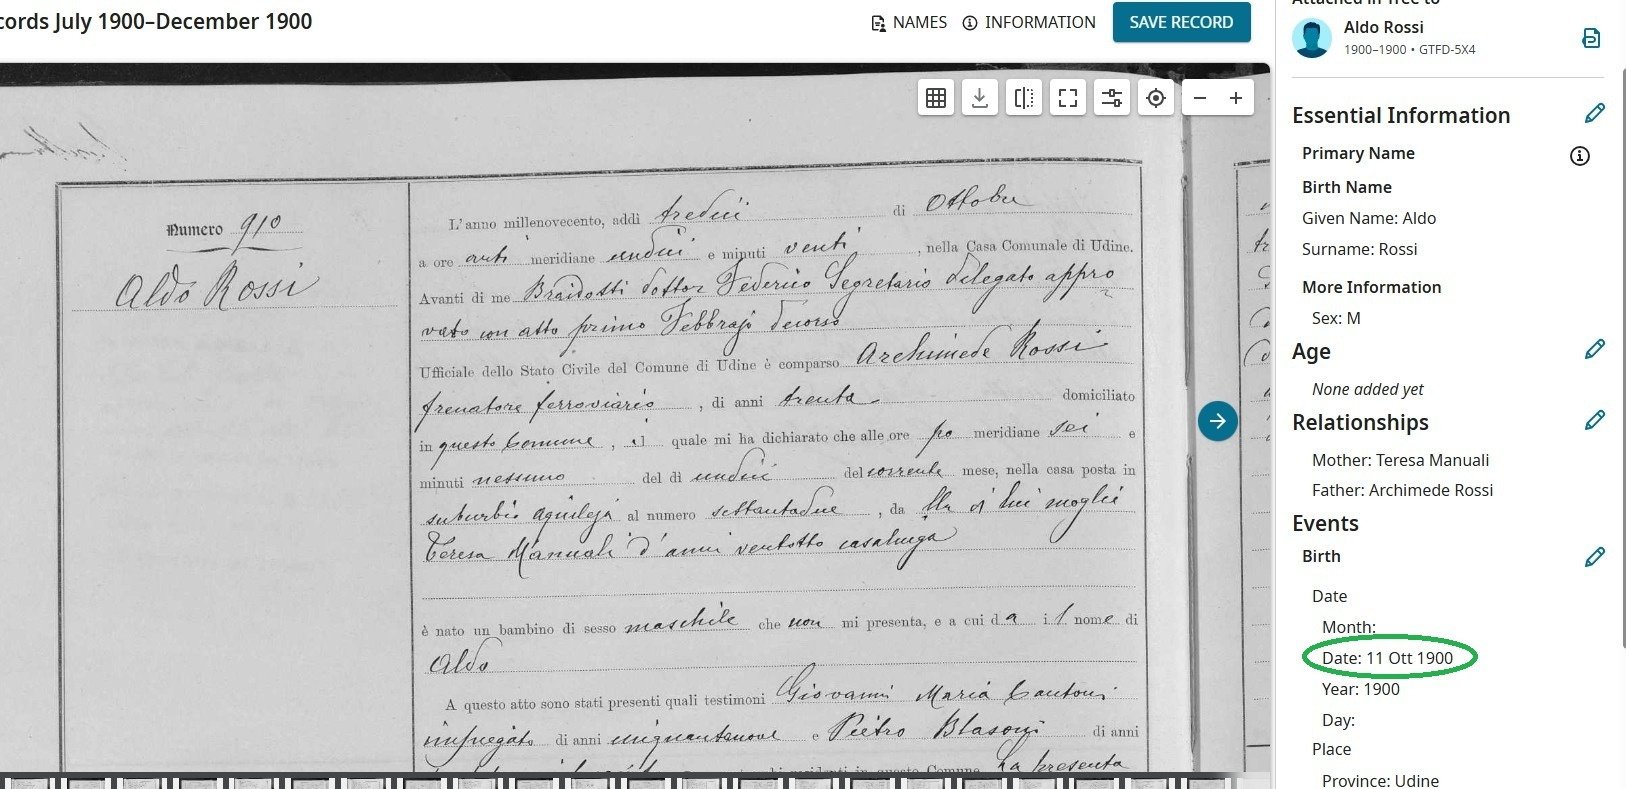 cords July 1900–December 1900
NAMES
INFORMATION
SAVE RECORD
Numero 910
Aldo Rossi
L'anno millenovecento, addì tredici di Ottobre
a ore anti meridiane undici e minuti venti, nella Casa Comunale di Udine.
Avanti di me Braidotti dottor Federico Segretario delegato appro
vato con atto primo Febbrajo decorso
Ufficiale dello Stato Civile del Comune di Udine è comparso Archimede Rossi
frenatore ferroviario, di anni trenta domiciliato
in questo Comune, il quale mi ha dichiarato che alle ore po meridiane sei e
minuti nessuno del dì undici del corrente mese, nella casa posta in
suburbio aquileja al numero settantadue, da lla di lui moglie
Teresa Manuali d'anni ventotto casalinga
è nato un bambino di sesso maschile che non mi presenta, e a cui dà il nome di
Aldo
A questo atto sono stati presenti quali testimoni Giovanni Maria Cantoni
impiegato di anni cinquantanove e Pietro Blasoni di anni
in questo Comune. La presenta
Attached in Tree to
Aldo Rossi
1900–1900 • GTFD-5X4
Essential Information
Primary Name
Birth Name
Given Name: Aldo
Surname: Rossi
More Information
Sex: M
Age
None added yet
Relationships
Mother: Teresa Manuali
Father: Archimede Rossi
Events
Birth
Date
Month:
Date: 11 Ott 1900
Year: 1900
Day:
Place
Province: Udine